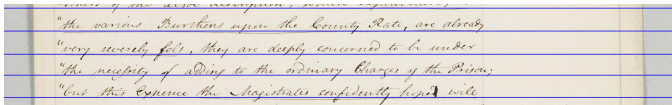 "the various Burthens upon the County Rate, are already
"very severely felt, they are deeply concerned to be under
"the necessity of adding to the ordinary Charges of the Prison;
"but this Expence the Magistrates confidently hoped will